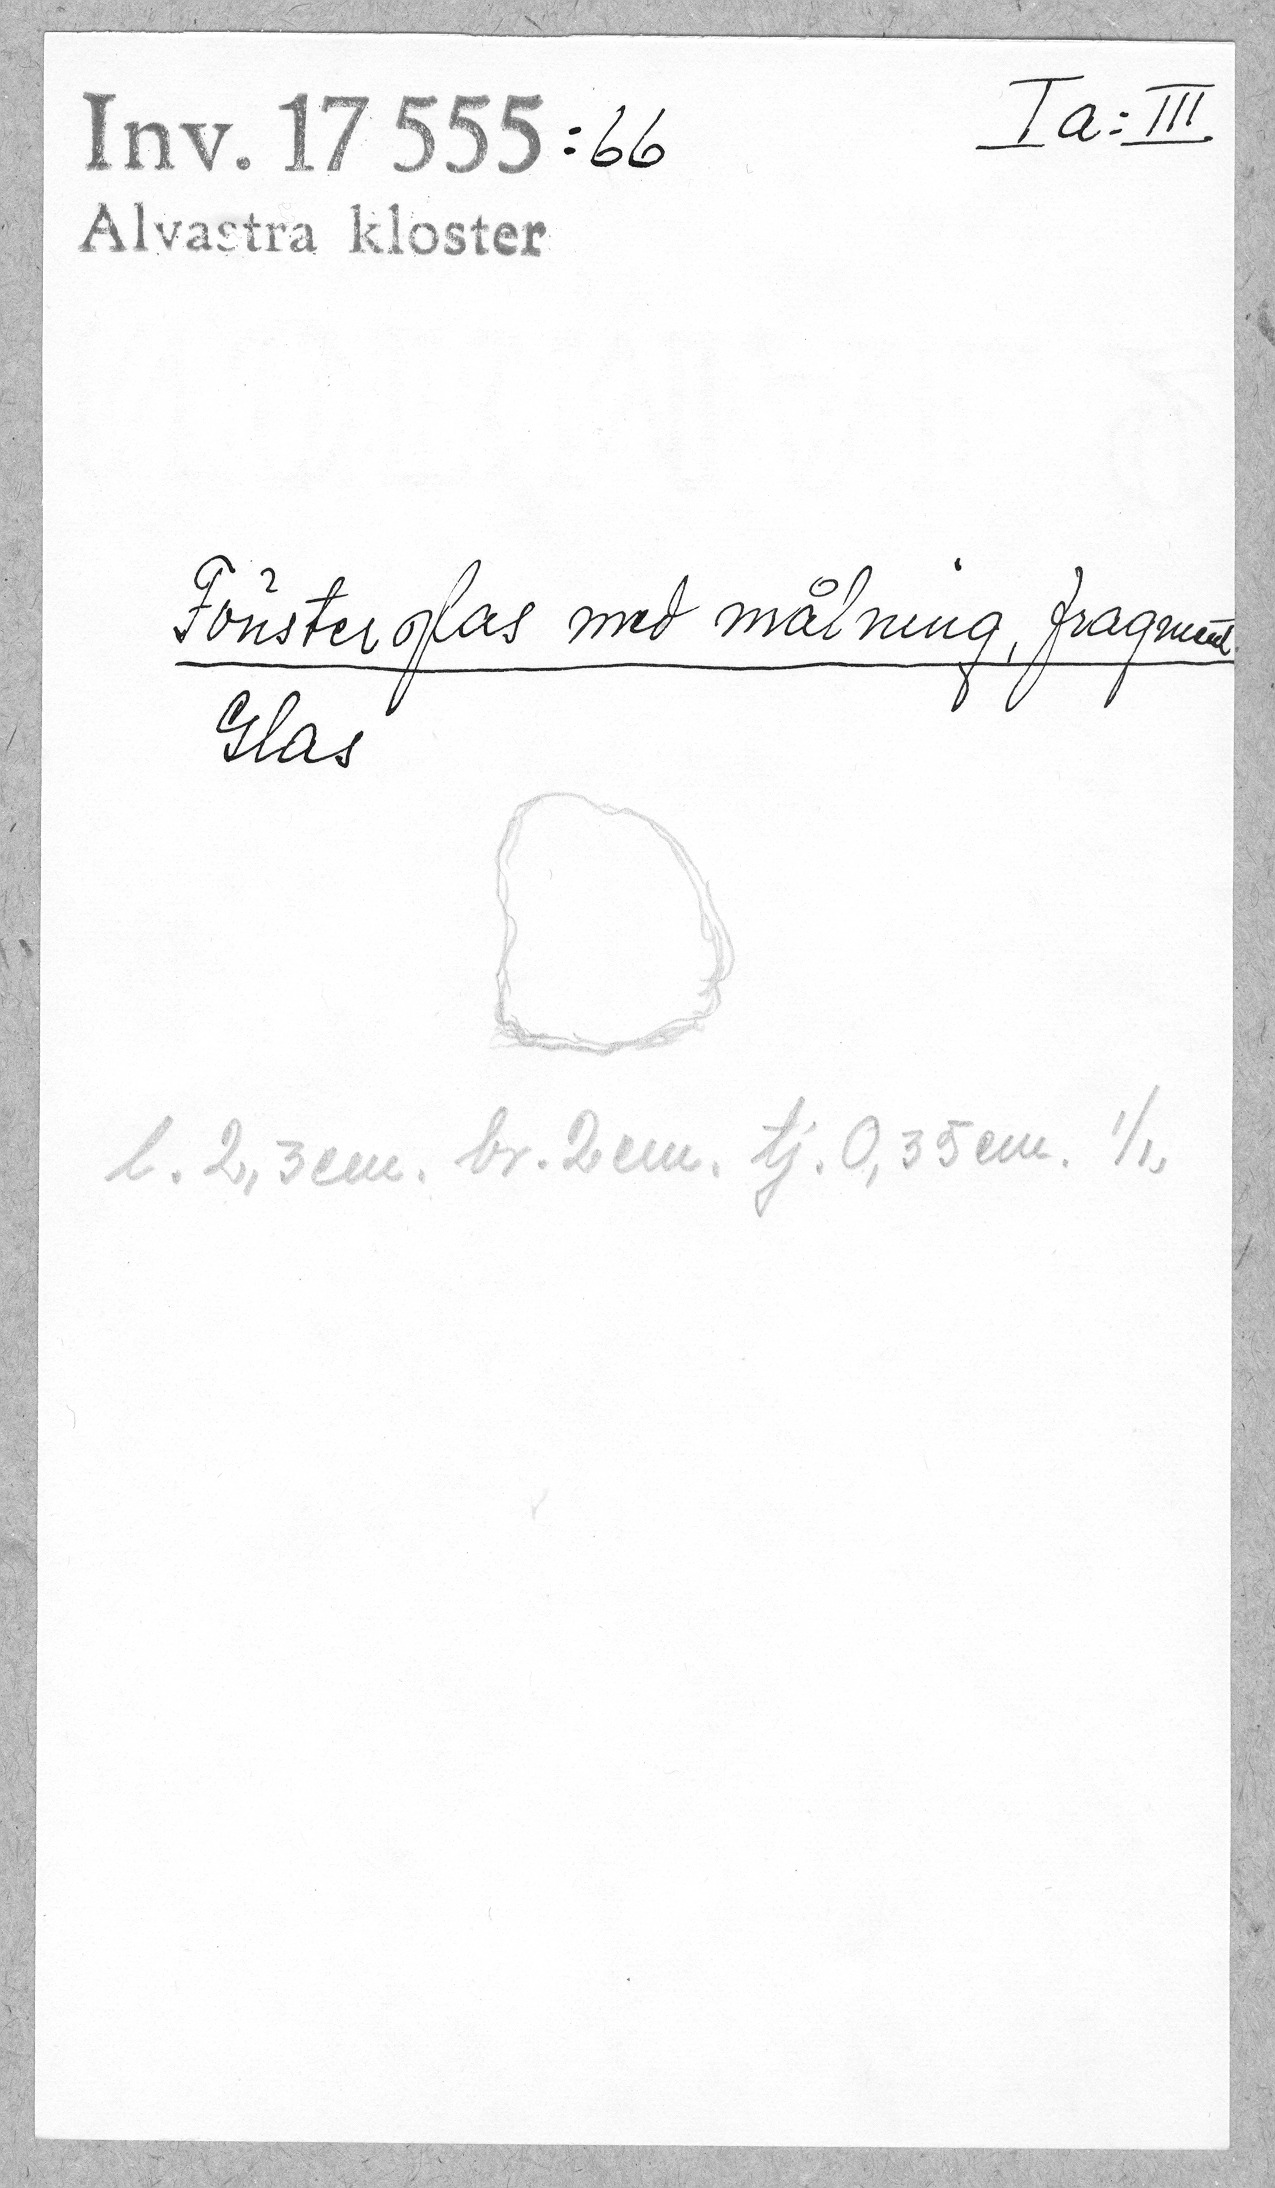 Inv. 17 555:66
Ia:III
Alvastra kloster
Fönsterglas med målning, fragment.
Glas
l. 2,3cm. br. 2cm. tj. 0,35cm. 1/1.